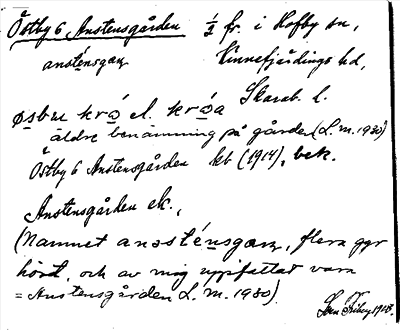 Åstby 6 Anstensgården ½ fr. i Hofby sn,
ansténsgaṛ Kinnefjärdings hd,
Skarab. l.
øsbu kró el. króa
äldre benämning på gården (L. m. 1930)
Åstby 6 Anstensgården kb (1914), bek.
Anstensgården ek.,
(Namnet ansténsgaṛ, flera ggr
hört, och av mig uppfattat vara
= Anstensgården L. m. 1930).
1913.